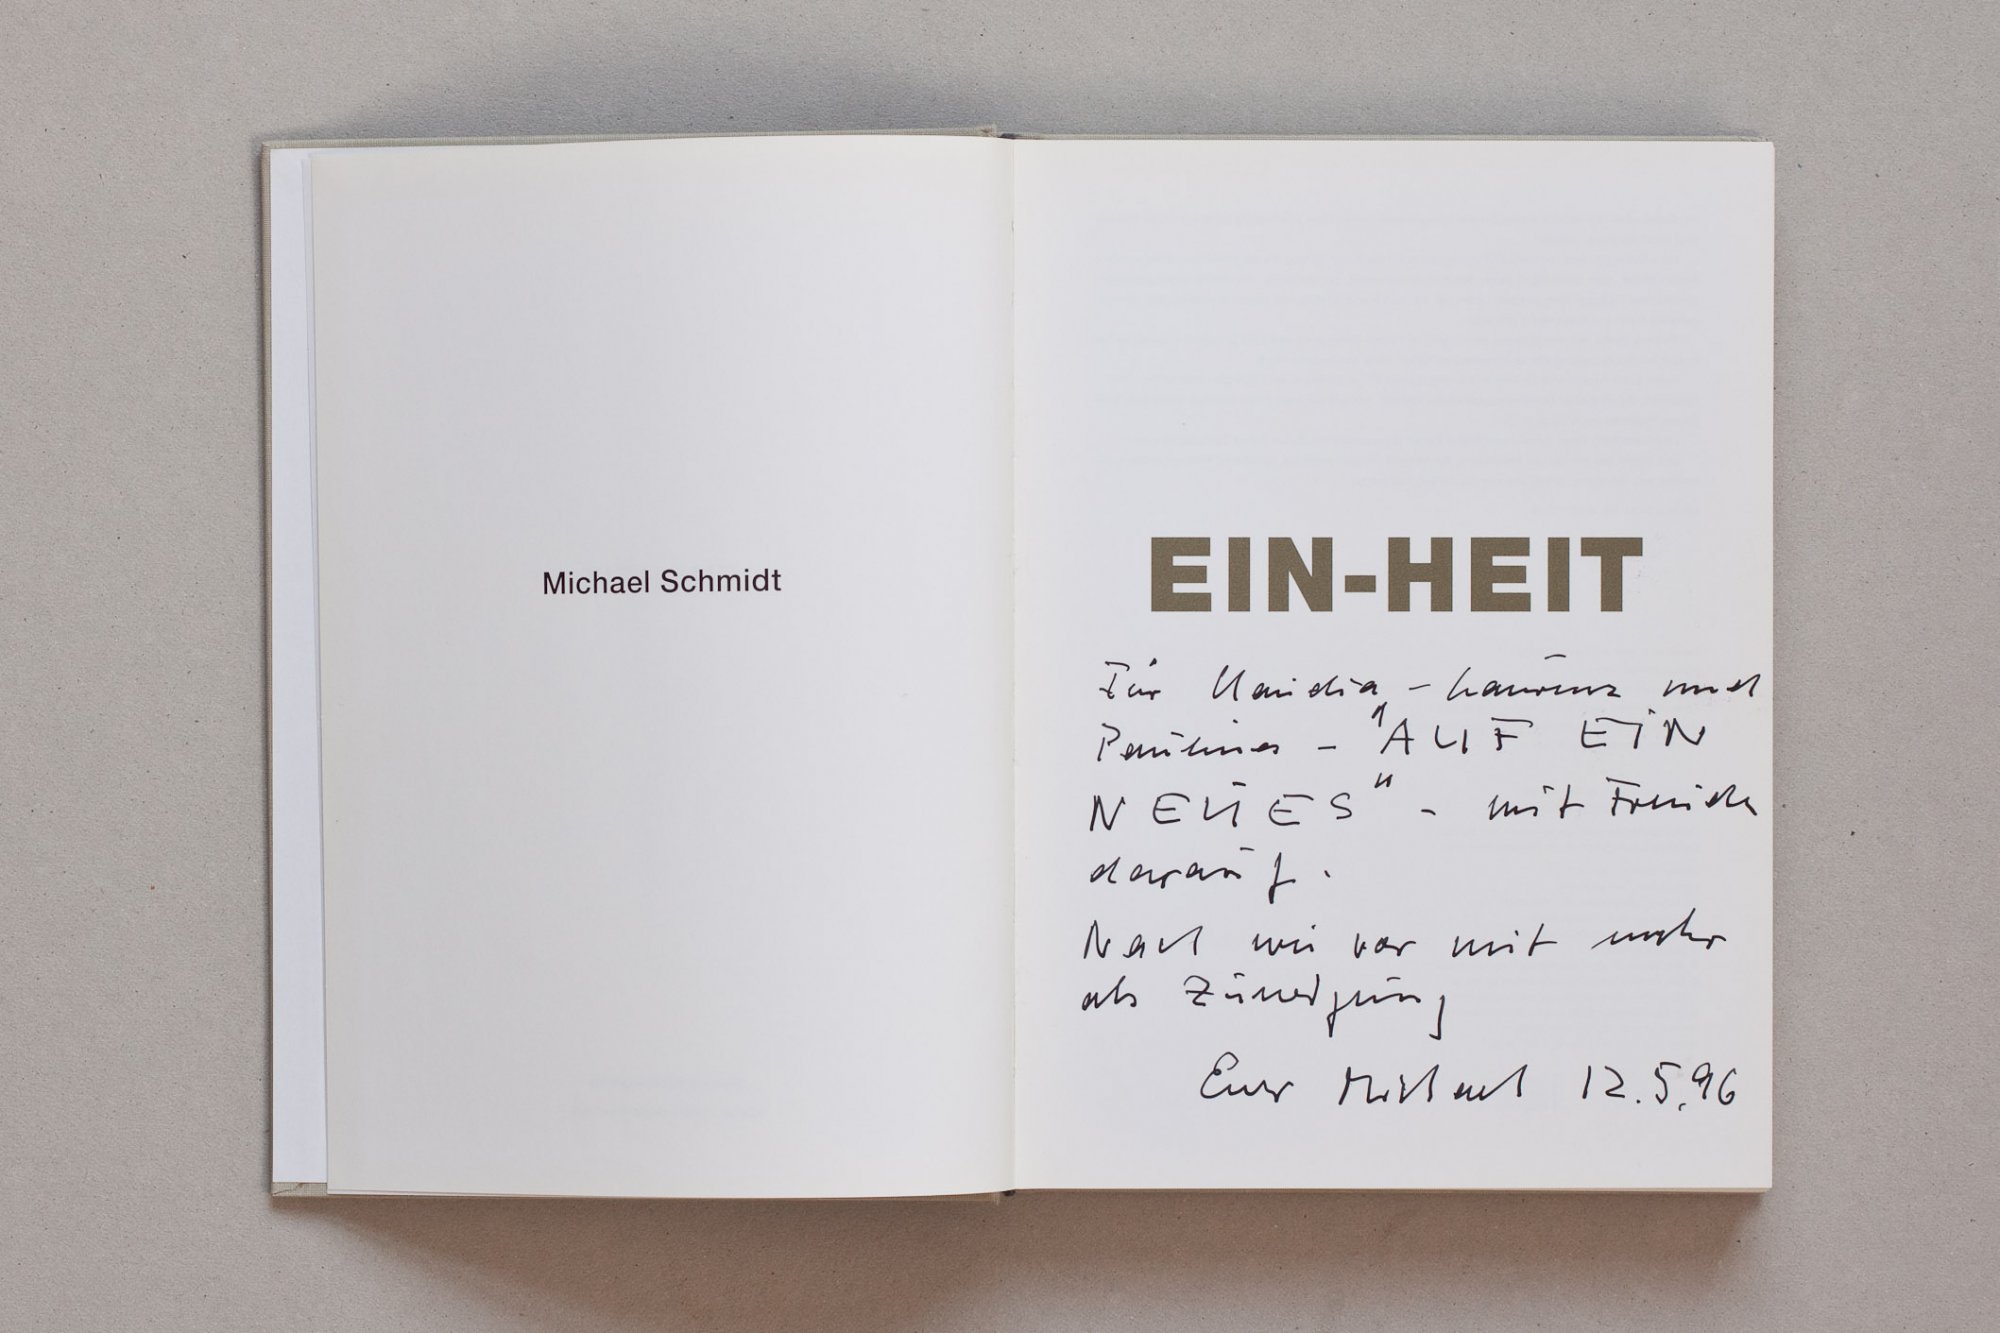 Michael Schmidt
EIN-HEIT
Für Claudia, - Laurenz und
Paulina - "AUF EIN
NEUES" - mit Freude
darauf.
Nach wie vor mit mehr
als Zuneigung
Euer Michael 12.5.96